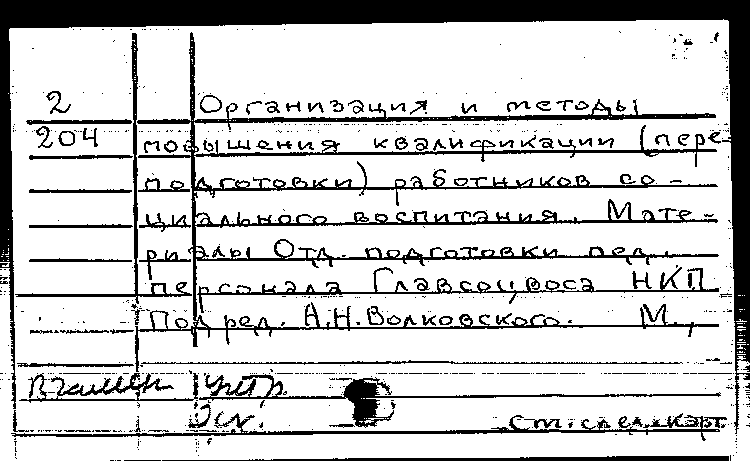 2 Организация и методы
204 повышения квалификации (пере-
подготовки) работников со-
циального воспитания. Мате-
риалы Отд. подготовки пед.
персонала Главсоцвоса НКП
Под ред. А.Н.Волковского. М.,
Взамен утр.
Эк.
См. след. карт.